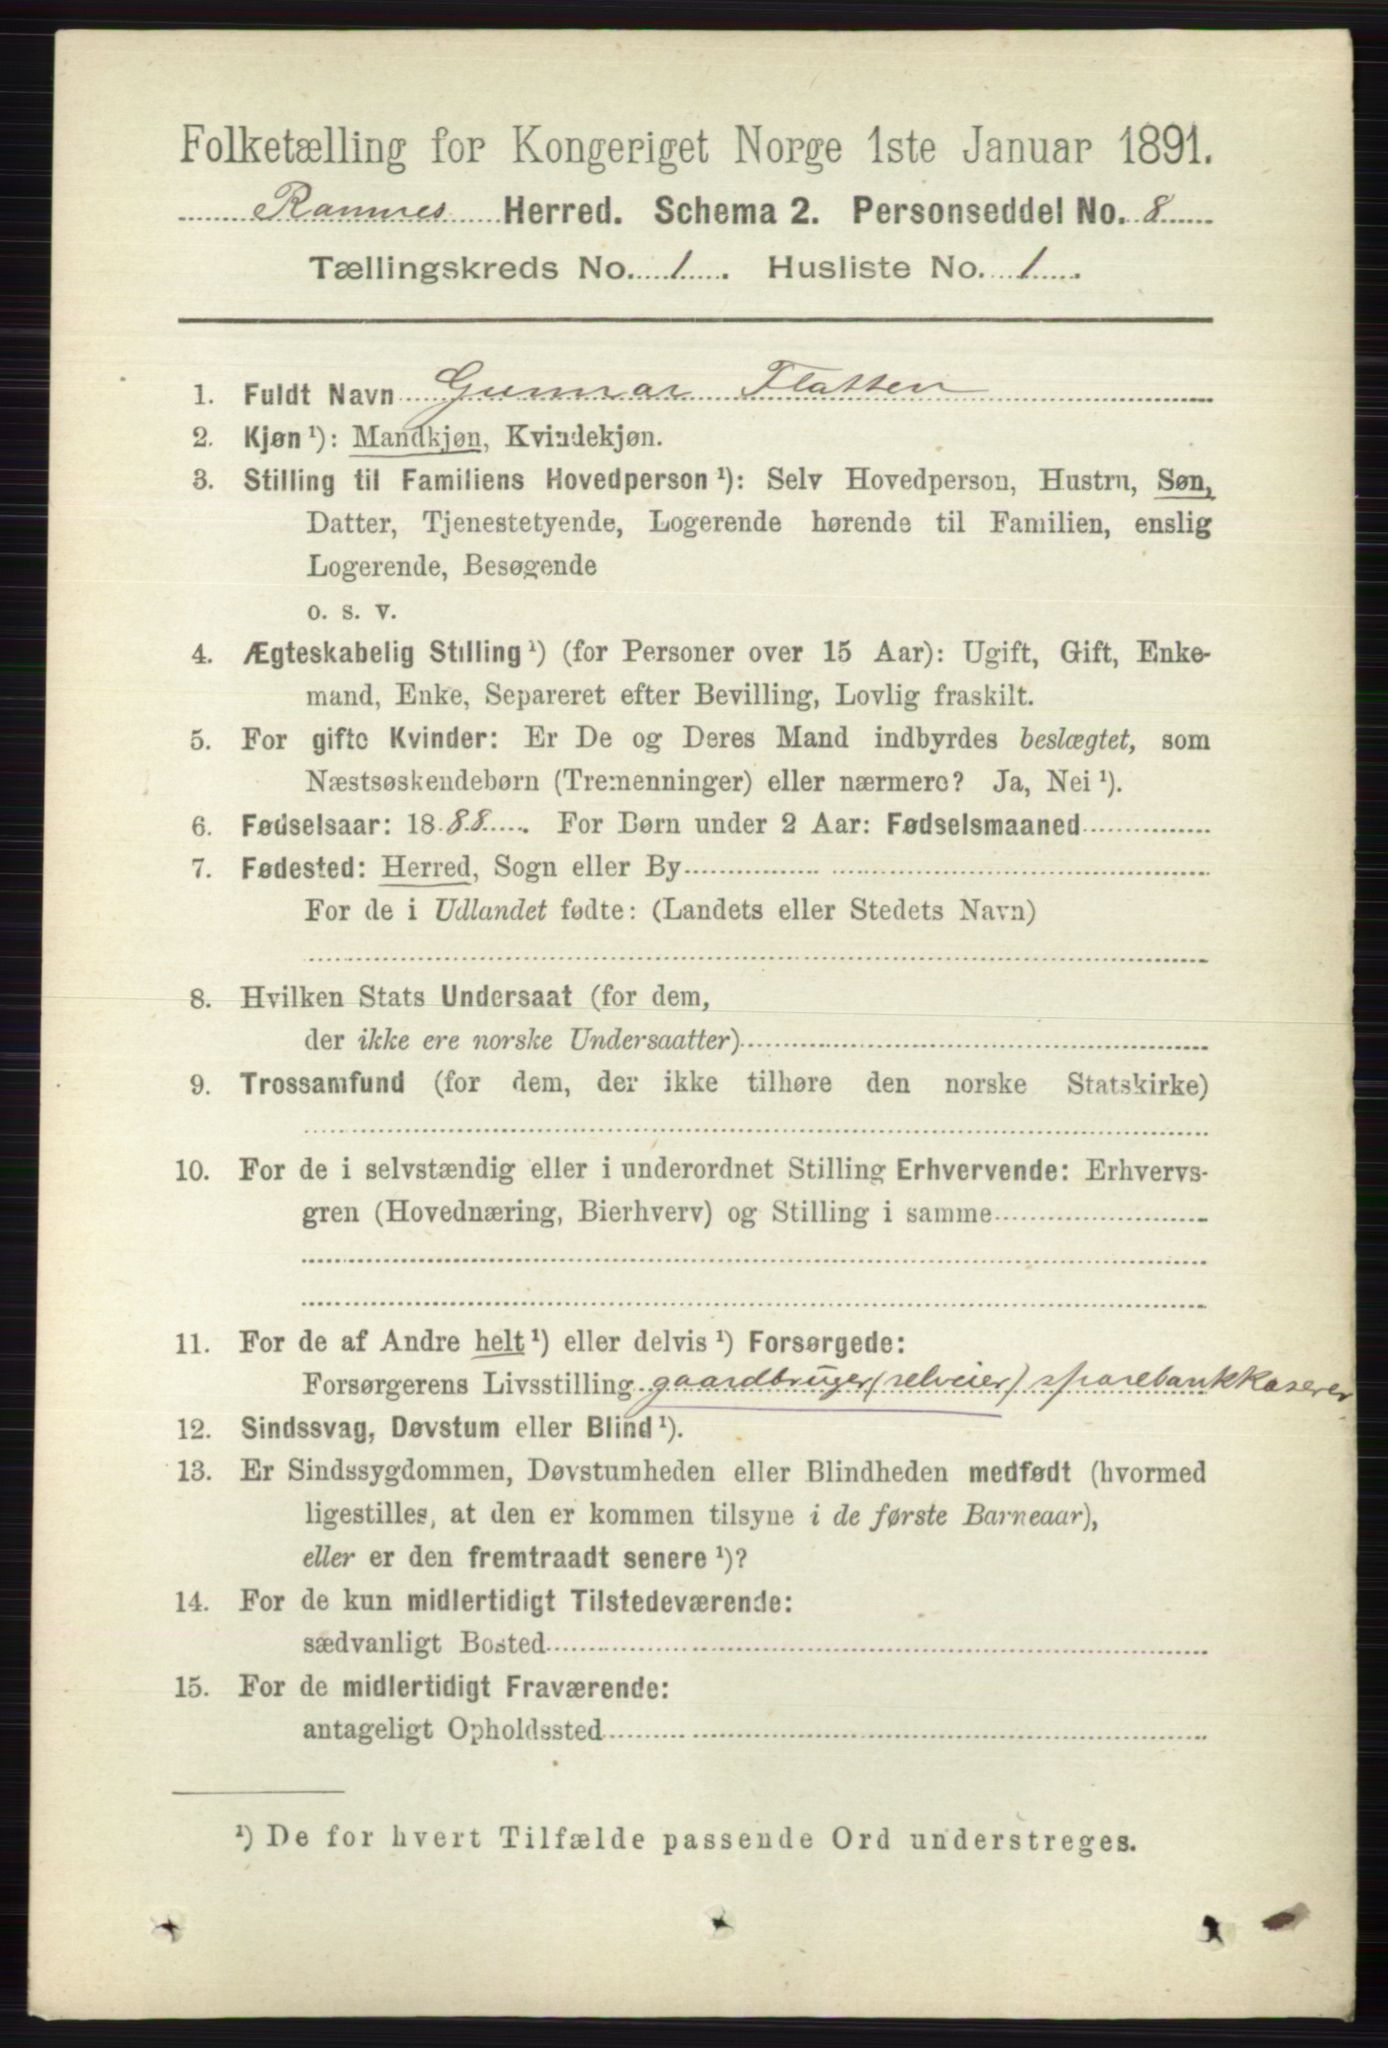 Folketælling for Kongeriget Norge 1ste Januar 1891.
Ramnes Herred. Schema 2. Personseddel No. 8
Tællingskreds No. 1. Husliste No. 1.
1. Fuldt Navn Gunnar Flatten
2. Kjøn¹): Mandkjøn, Kvindekjøn.
3. Stilling til Familiens Hovedperson¹): Selv Hovedperson, Hustru, Søn,
Datter, Tjenestetyende, Logerende hørende til Familien, enslig
Logerende, Besøgende
o. s. v.
4. Ægteskabelig Stilling¹) (for Personer over 15 Aar): Ugift, Gift, Enke-
mand, Enke, Separeret efter Bevilling, Lovlig fraskilt.
5. For gifte Kvinder: Er De og Deres Mand indbyrdes beslægtet, som
Næstsøskendebørn (Tremenninger) eller nærmere? Ja, Nei¹).
6. Fødselsaar: 1888. For Børn under 2 Aar: Fødselsmaaned
7. Fødested: Herred, Sogn eller By
For de i Udlandet fødte: (Landets eller Stedets Navn)
8. Hvilken Stats Undersaat (for dem,
der ikke ere norske Undersaatter)
9. Trossamfund (for dem, der ikke tilhøre den norske Statskirke)
10. For de i selvstændig eller i underordnet Stilling Erhvervende: Erhvervs-
gren (Hovednæring, Bierhverv) og Stilling i samme
11. For de af Andre helt¹) eller delvis¹) Forsørgede:
Forsørgerens Livsstilling gaardbruger (selveier) sparebankkaserer
12. Sindssvag, Døvstum eller Blind¹).
13. Er Sindssygdommen, Døvstumheden eller Blindheden medfødt (hvormed
ligestilles, at den er kommen tilsyne i de første Barneaar),
eller er den fremtraadt senere¹)?
14. For de kun midlertidigt Tilstedeværende:
sædvanligt Bosted
15. For de midlertidigt Fraværende:
antageligt Opholdssted
¹) De for hvert Tilfælde passende Ord understreges.